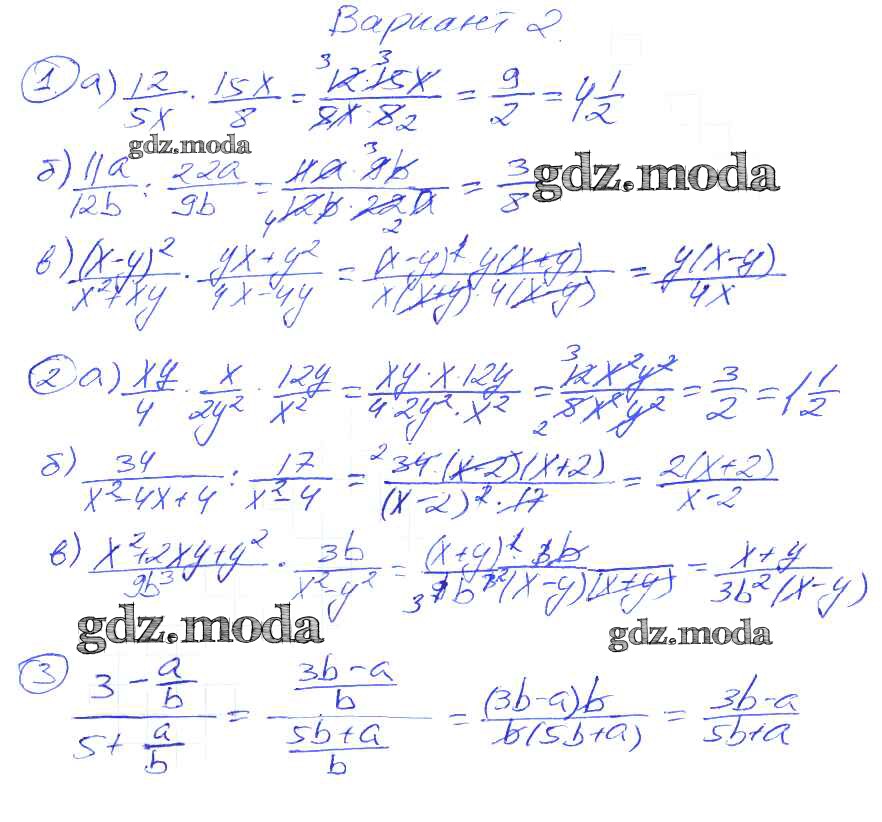 Вариант 2.
① а) 12/5x · 15x/8 = 12·15x/5x·8 = 9/2 = 4 1/2
gdz.moda
б) 11a/12b : 22a/9b = 11a·9b/12b·22a = 3/8 gdz.moda
в) (x-y)²/x²+xy · yx+y²/4x-4y = (x-y)² y(x+y)/x(x+y)·4(x-y) = y(x-y)/4x
② а) xy/4 · x/2y² · 12y/x² = xy·x·12y/4·2y²·x² = 12x²y²/8x²y² = 3/2 = 1 1/2
б) 34/x²-4x+4 : 17/x²-4 = 34·(x-2)(x+2)/(x-2)²·17 = 2(x+2)/x-2
в) x²+2xy+y²/9b³ · 3b/x²-y² = (x+y)²·3b/9b³(x-y)(x+y) = x+y/3b²(x-y)
gdz.moda gdz.moda
③ 3-a/b / 5+a/b = 3b-a/b / 5b+a/b = (3b-a)b/b(5b+a) = 3b-a/5b+a